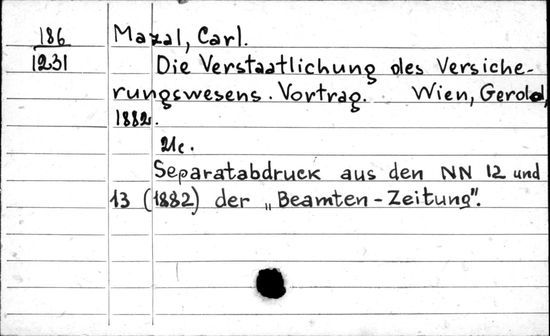 186
1231
Mazal, Carl.
Die Verstaatlichung des Versiche-
rungswesens. Vortrag. Wien, Gerold,
1882.
Separatabdruck aus den NN 12 und
13 (1882) der „Beamten-Zeitung".